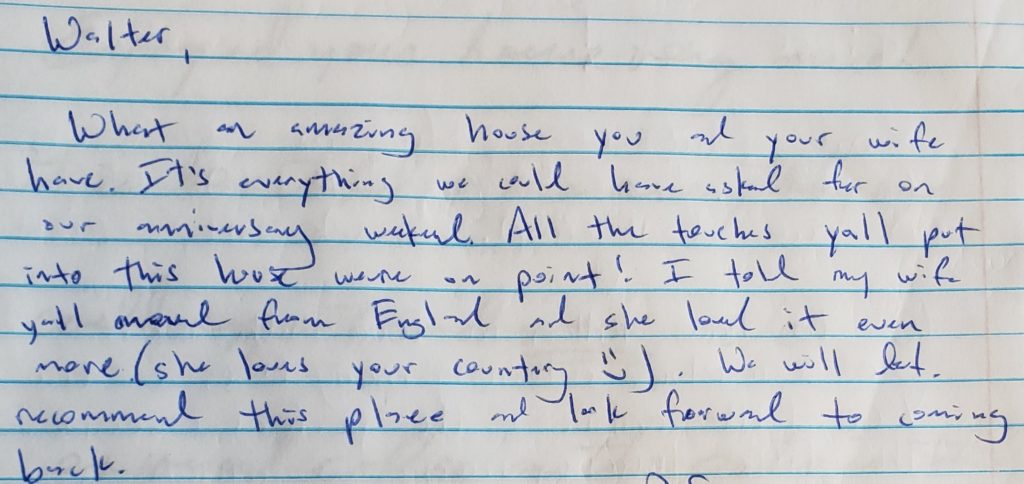 Walter,
What an amazing house you and your wife
have. It's everything we could have asked for on
our anniversary weekend. All the touches yall put
into this house were on point! I told my wife
yall moved from England and she loved it even
more (she loves your country :)). We will def.
recommend this place and look forward to coming
back.